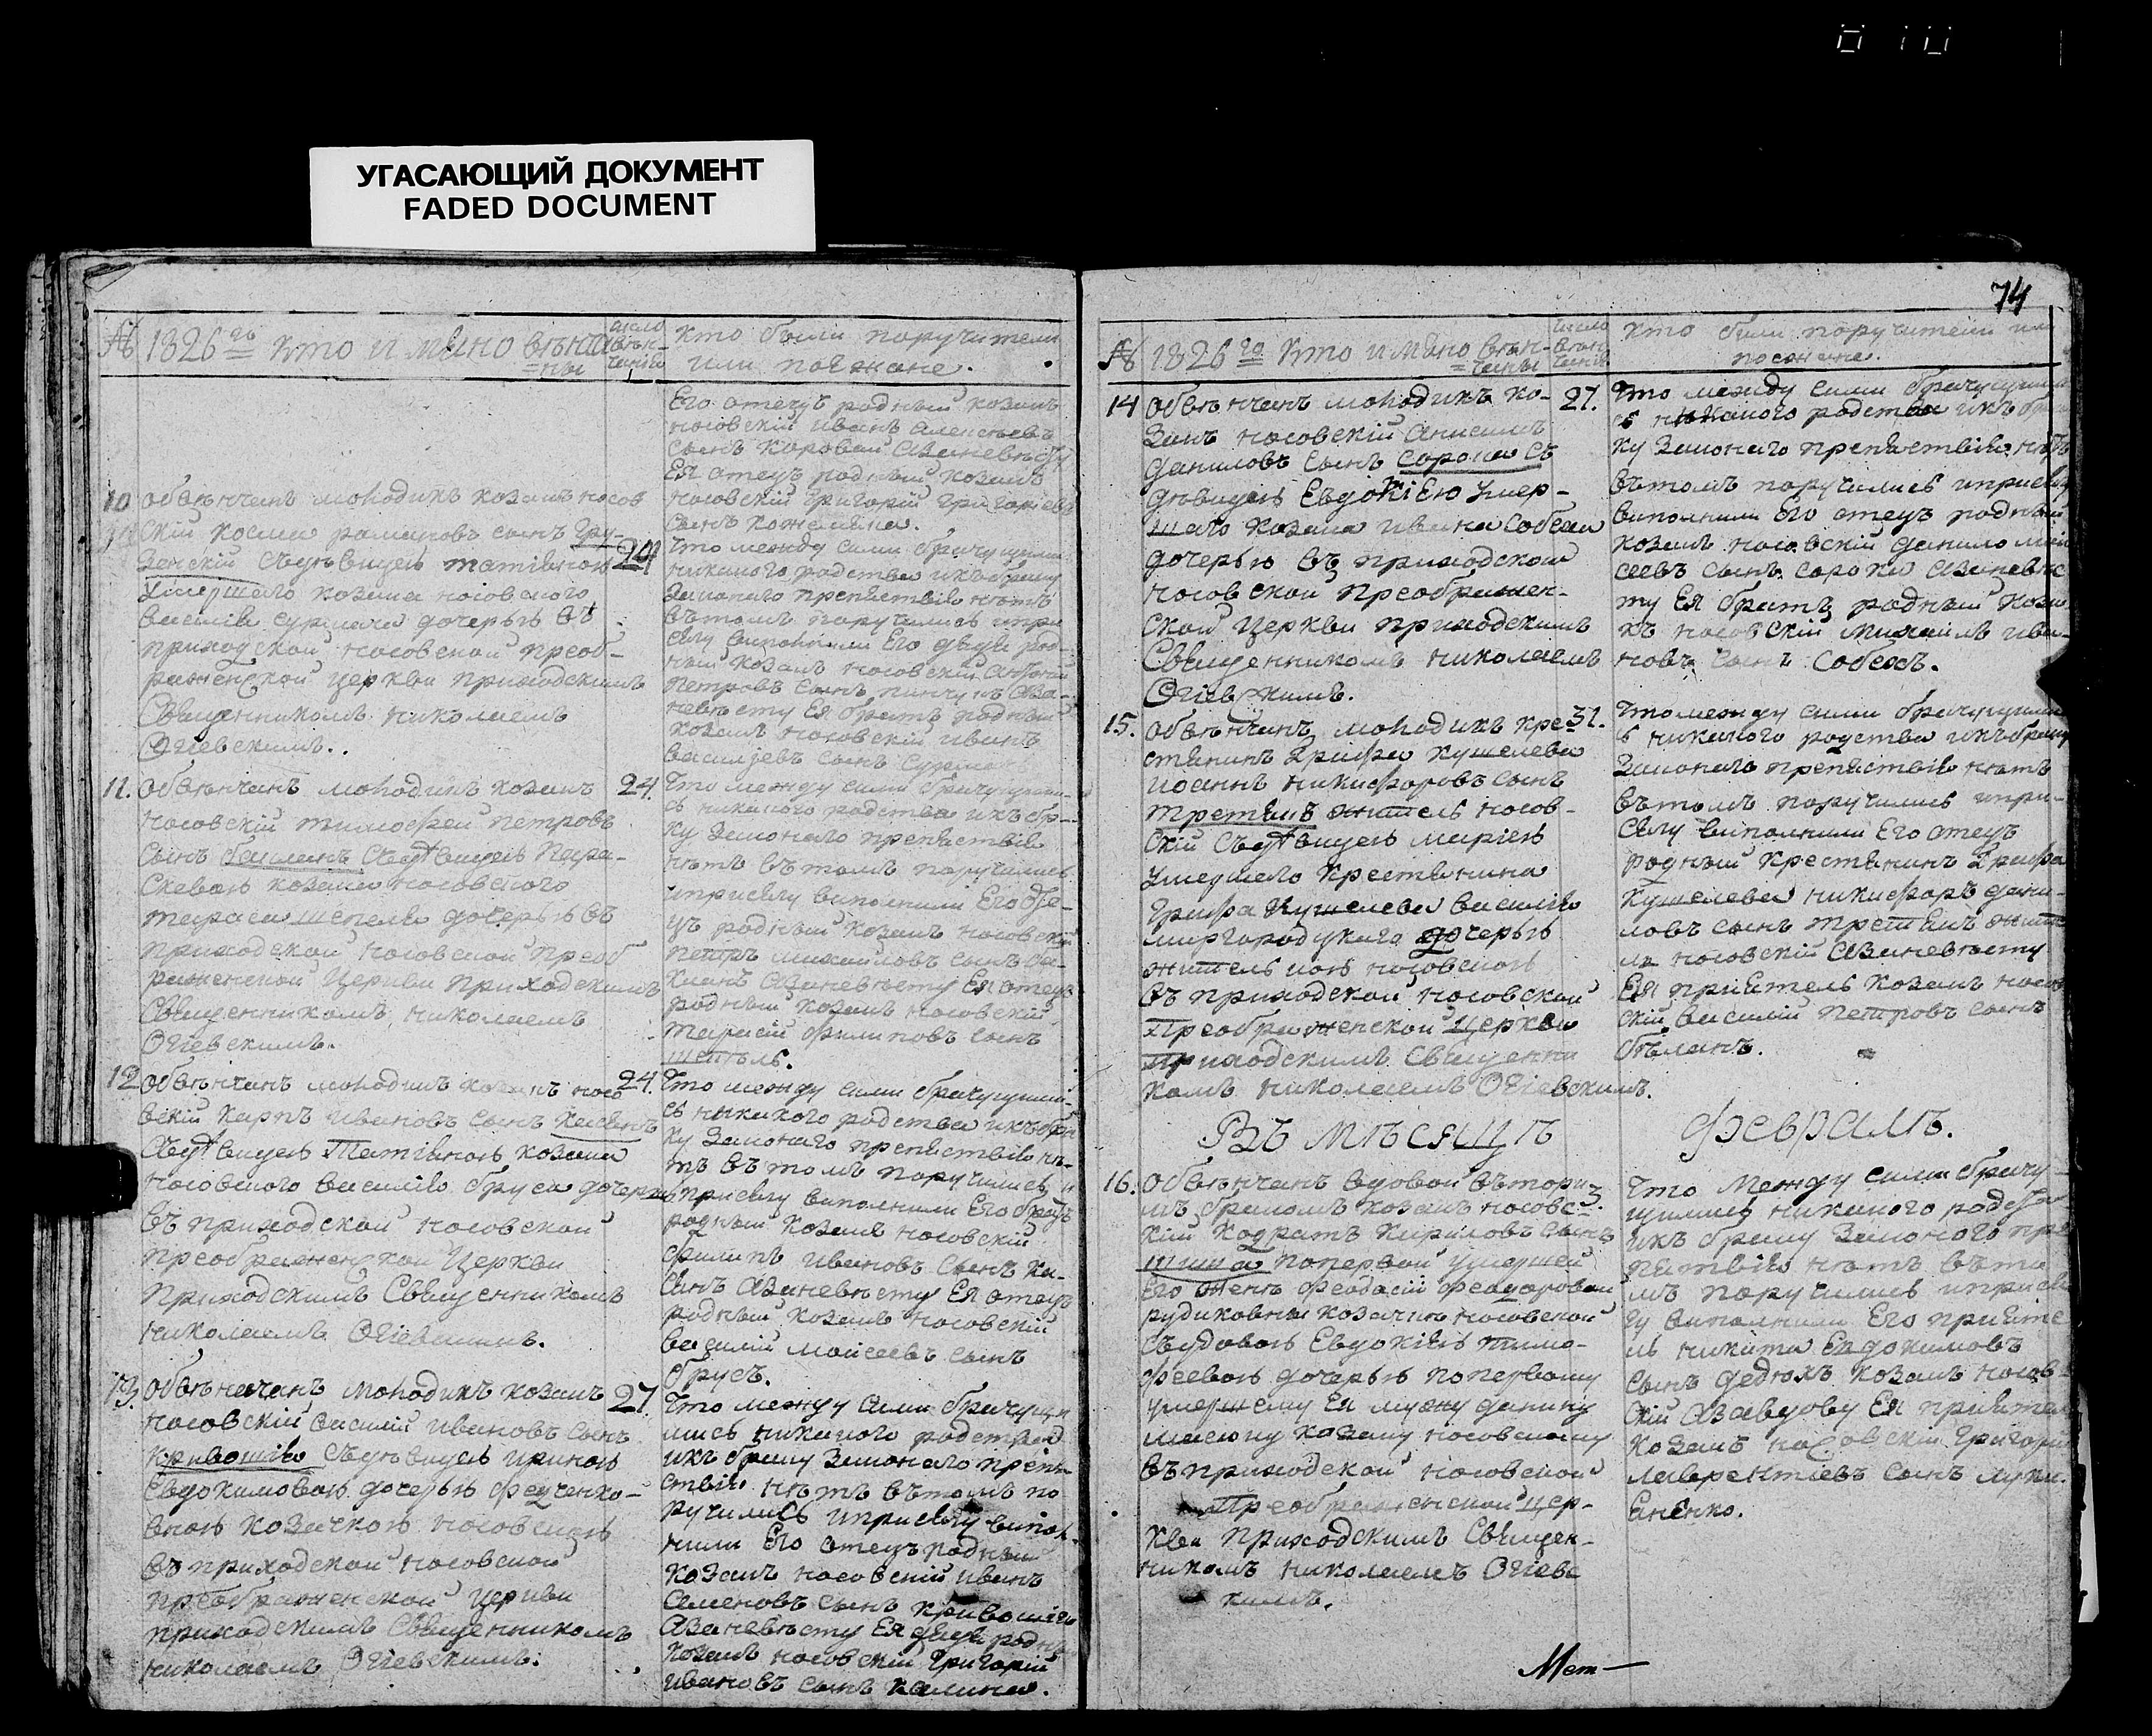 УГАСАЮЩИЙ ДОКУМЕНТ
FADED DOCUMENT
№ 1826го кто и мѣно вѣнча=
=ны
число
вѣн-
чанія
кто были поручители
или поезжане.
Его отецъ родный козакъ
носовскій иванъ алексѣевъ
сынъ Коровай Азаневѣсту
Ея отецъ родный козакъ
носовскій григорій григоріевъ
сынъ кожемяка.
10
обвѣнчанъ молодикъ козакъ носов
скій косма романовъ сынъ
Сдѣвицею татіяною
умершаго козака носовского
василія сурмача дочерью въ
приходской носовской преоб-
раженской церкви приходскимъ
Священникомъ николаемъ
Огіевскимъ.
24
Что между сими брачущими
никакого родства ихъ браку
Законаго препятствія нѣтъ
въ томъ поручились и при
сягу виполнили Его дядя род-
ный козакъ носовскій антоній
Петровъ сынъ пинчукъ Аза-
невѣсту Ея братъ родный
козакъ носовскій иванъ
василіевъ сынъ сурмачъ
11.
Обвѣнчанъ молодикъ козакъ
носовскій тимофей петровъ
сынъ бакланъ Сдѣвицею Пара-
скевою козака носовского
тараса шепеля дочерью въ
приходской носовской преоб
раженской Церкви приходскимъ
Священникомъ николаемъ
Огіевскимъ.
24.
Что между сими брачущими-
сь никакого родства ихъ бра-
ку Законаго препятствія
нѣтъ въ томъ поручились
и присягу виполнили Его оте-
цъ родный козакъ носовскій
петръ михайловъ сынъ ба-
кланъ Азаневѣсту Ея отецъ
родный козакъ носовскій
тарасій филиповъ сынъ
шепель.
12
Обвѣнчанъ молодикъ козакъ носо
вскій карпъ ивановъ сынъ
Сдѣвицею Татіяною козака
носовского василія бруса дочерью
въ приходской носовской
преображенской Церкви
приходскимъ Священникомъ
николаемъ Огіевскимъ.
24.
Что между сими брачущими-
сь никакого родства ихъ бра
ку Законаго препятствія нѣ-
тъ въ томъ поручились и
присягу виполнили Его братъ
родный козакъ носовскій
филипъ ивановъ сынъ
Азаневѣсту Ея отецъ
родный козакъ носовскій
василій моисеевъ сынъ
брусъ.
13.
Обвѣнчанъ молодикъ козакъ
носовскій василій ивановъ сынъ
кривошія Сдѣвицею ириною
Евдокимовою дочерью федченко-
вною козачкою носовскою
въ приходской носовской
преображенской церкви
приходскимъ Священникомъ
николаемъ Огіевскимъ.
27
Что между сими брачущи
мись никакого родства
ихъ браку Законаго препя
тствія нѣтъ въ томъ по
ручились и присягу випол
нили Его отецъ родный
козакъ носовскій иванъ
Семеновъ сынъ кривошія
Азаневѣсту Ея дядя родный
козакъ носовскій григорій
ивановъ сынъ калина.
74
№ 1826го кто и мѣно вѣн-
=чаны
число
вѣн
чанія
кто были поручители или
поезжане.
14
Обвѣнчанъ молодикъ ко-
закъ носовскій Анисимъ
даниловъ сынъ сорока Съ
дѣвицею Евдокіею умер-
шаго козака ивана Собеха
дочерью въ приходской
носовской преображен-
ской церкви приходскимъ
Священникомъ николаемъ
Огіевскимъ.
27.
Что между сими брачущими
сь никакого родства ихъ бра
ку Законаго препятствія нѣтъ
въ томъ поручились и присягу
виполнили Его отецъ родный
козакъ носовскій данило мой
сеевъ сынъ сорока Азаневѣс
ту Ея братъ родный коза
къ носовскій михаилъ ива-
новъ сынъ Собехъ.
15.
Обвѣнчанъ молодикъ кре-
стянинъ Графа кушелева
иоаннъ никифоровъ сынъ
третякъ житель носов-
скій Сдѣвицею маріею
умершаго крестянина
Графа Кушелева василія
миргородцкаго дочерью
жительскою носовскою
въ приходской носовской
Преображенской Церкви
приходскимъ Священни
комъ николаемъ Огіевскимъ.
31.
Что между сими брачущими
сь никакого родства ихъ браку
Законаго препятствія нѣтъ
въ томъ поручились и при-
сягу виполнили Его отецъ
родный крестянинъ Графа
кушелева никифоръ дани-
ловъ сынъ третякъ жите
ль носовскій Азаневѣсту
Ея пріятель козакъ носов
скій василій петровъ сынъ
Въ мѣсяцѣ
Февралѣ.
16.
Обвѣнчанъ вдовой вътори
мъ бракомъ козакъ носовс
кій Кодратъ Кириловъ сынъ
шиша попервой умершей
Его женѣ феодосій феодоровой
рудиковны козачки носовской
Съ вдовою Евдокіею тимо-
феевою дочерью попервому
умершему Ея мужу данилу
козаку носовскому
въ приходской носовской
Преображенской цер-
кви приходскимъ Священ-
никомъ николаемъ Огіевс
кимъ.
3.
Что между сими брачу
щимись никакого родства
ихъ браку Законого пре
пятствія нѣтъ въ то
мъ поручились и прися
гу виполнили Его пріяте
ль никита Евдокимовъ
сынъ дедюхъ козакъ носов-
скій Азавдову Ея пріятель
козакъ носовскій григорій
лаврентіевъ сынъ
Мет—